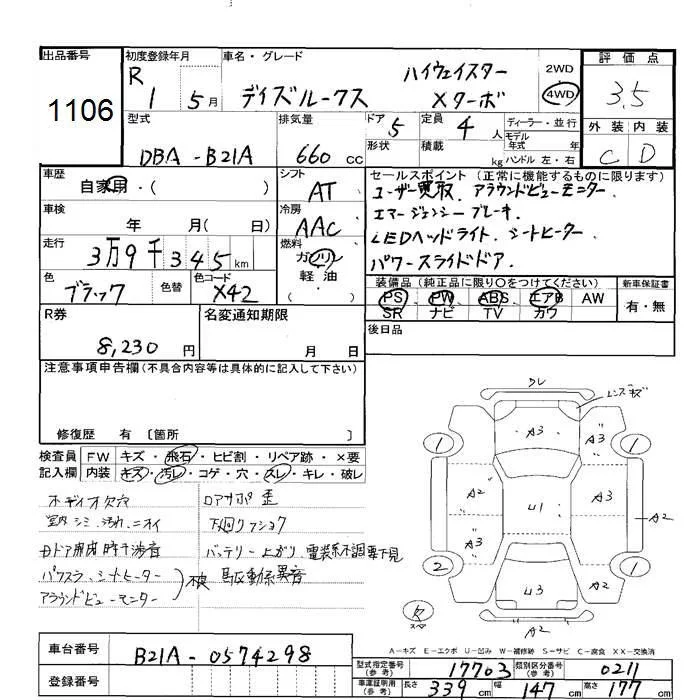 出品番号
1106
初度登録年月
R 1 5月
車名・グレード
デイズルークス
ハイウェイスター
Xターボ
2WD
4WD
評価点
3.5
外装 内装
C D
型式
DBA - B21A
排気量
660 cc
ドア 5
形状
定員 4 人
積載 kg
ディーラー・並行
モデル
年式 年
ハンドル 左・右
車歴
自家用・( )
シフト
AT
セールスポイント (正常に機能するものに限ります)
ユーザー買取. アラウンドビューモニター.
エマージェンシーブレーキ.
LEDヘッドライト. シートヒーター.
パワースライドドア.
車検
年 月( 日)
冷房
AAC
走行
3万9千345km
燃料
ガソリン
軽油
( )
色
ブラック
色替
色コード
X42
装備品 (純正品に限り○をつけてください)
PS PW ABS エアB AW
SR ナビ TV カワ
新車保証書
有・無
R券
8,230 円
名変通知期限
月 日
後日品
注意事項申告欄(不具合内容等は具体的に記入して下さい)
修復歴 有 〔箇所 〕
検査員
記入欄
FW キズ・飛石・ヒビ割・リペア跡・×要
内装 キズ・汚レ・コゲ・穴・スレ・キレ・破レ
ボディイオ欠穴
室内シミ.汚れ.ニオイ
時干渉音
パワスラ.シートヒーター
アラウンドビューモニター
不良
ロアサポ歪
下廻りアショク
バッテリー上がり.電装系不調要下見
駆動系異音
ウレ
レンズキズ
1
A3
A3
1
A2
U1
A3
A2
A3
2
U3
A2
1
A2
欠
スペア
A-キズ E-エクボ U-凹み W-補修跡 S-サビ C-腐食 XX-交換済
車台番号
B21A - 0574298
登録番号
型式指定番号
(参考)
17703
類別区分番号
(参考)
0211
車庫証明用
(参考)
長さ 339 cm
幅 147 cm
高さ 177 cm